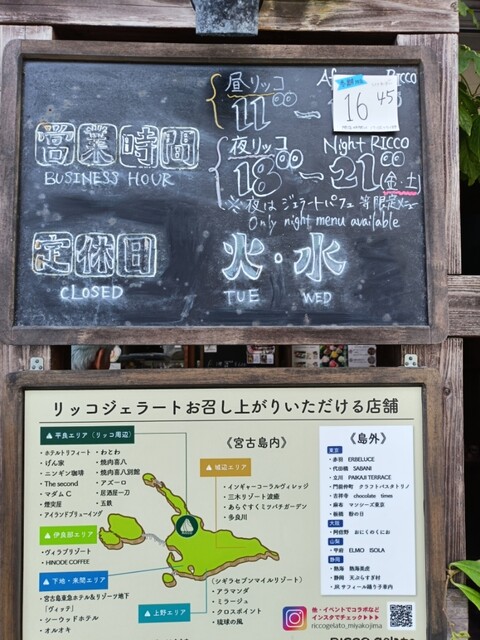 営業時間
BUSINESS HOUR
昼リッコ
11:00 〜
16 45
夜リッコ Night RICCO
18:00 〜 21:00 (金・土)
※ 夜は ジェラートパフェ 等限定メニュー
Only night menu available
定休日
CLOSED
火・水
TUE WED
リッコジェラートお召し上がりいただける店舗
平良エリア(リッコ周辺)
・ホテルトリフィート
・げん家
・ニンギン珈琲
・The second
・マダム C
・煙突屋
・アイランドブリューイング
・わとわ
・焼肉喜八
・焼肉喜八別館
・アズーロ
・居酒屋一刀
・五鉄
伊良部エリア
・ヴィラブリゾート
・HINODE COFFEE
下地・来間エリア
・宮古島東急ホテル&リゾーツ地下
「ヴィッテ」
・シーウッドホテル
・オルオキ
《宮古島内》
城辺エリア
・インギャーコーラルヴィレッジ
・三木リゾート波癒
・あらぐすくミツバチガーデン
・多良川
上野エリア
(シギラセブンマイルリゾート)
・アラマンダ
・ミラージュ
・クロスポイント
・琉球の風
《島外》
東京
・赤羽 ERBELUCE
・代田橋 SABANI
・立川 PAIKAJI TERRACE
・門前仲町 クラフトパスタトリノ
・吉祥寺 chocolate times
・麻布 マンシーズ東京
・板橋 粉の日
大阪
・阿倍野 おにくのくにお
山梨
・甲府 ELMO ISOLA
静岡
・熱海 熱海茶虎
・静岡 天ぷらすぎ村
・JR サフィール踊り子車内
他・イベントでコラボなど
インスタでチェック▶▶▶
riccogelato_miyakojima